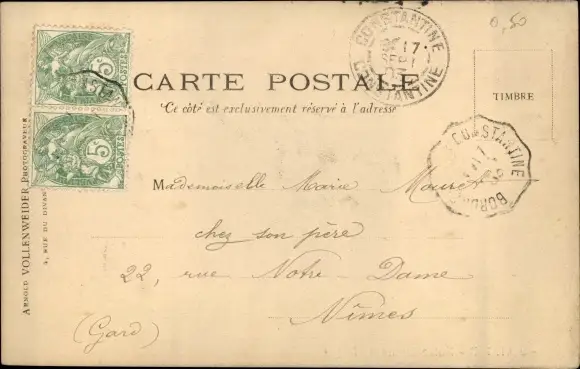 0,50
CONSTANTINE
CONSTANTINE
17
5
POSTES
5
POSTES
CARTE POSTALE
Ce côté est exclusivement réservé à l'adresse
TIMBRE
CONSTANTINE
Mademoiselle Marie
chez son père
22, rue Notre-Dame
Nîmes
(Gard)
ARNOLD VOLLENWEIDER PHOTOGRAVEUR
RUE DU DIVAN